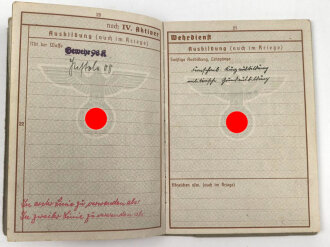 20
noch IV. Aktiver
Ausbildung (auch im Kriege)
Mit der Waffe
Gewehr 98 K
Pistole 08
22
In erster Linie zu verwenden als:
In zweiter Linie zu verwenden als:
21
Wehrdienst
Ausbildung (auch im Kriege)
Sonstige Ausbildung, Lehrgänge
militärische
Abzeichen usw. (auch im Kriege)